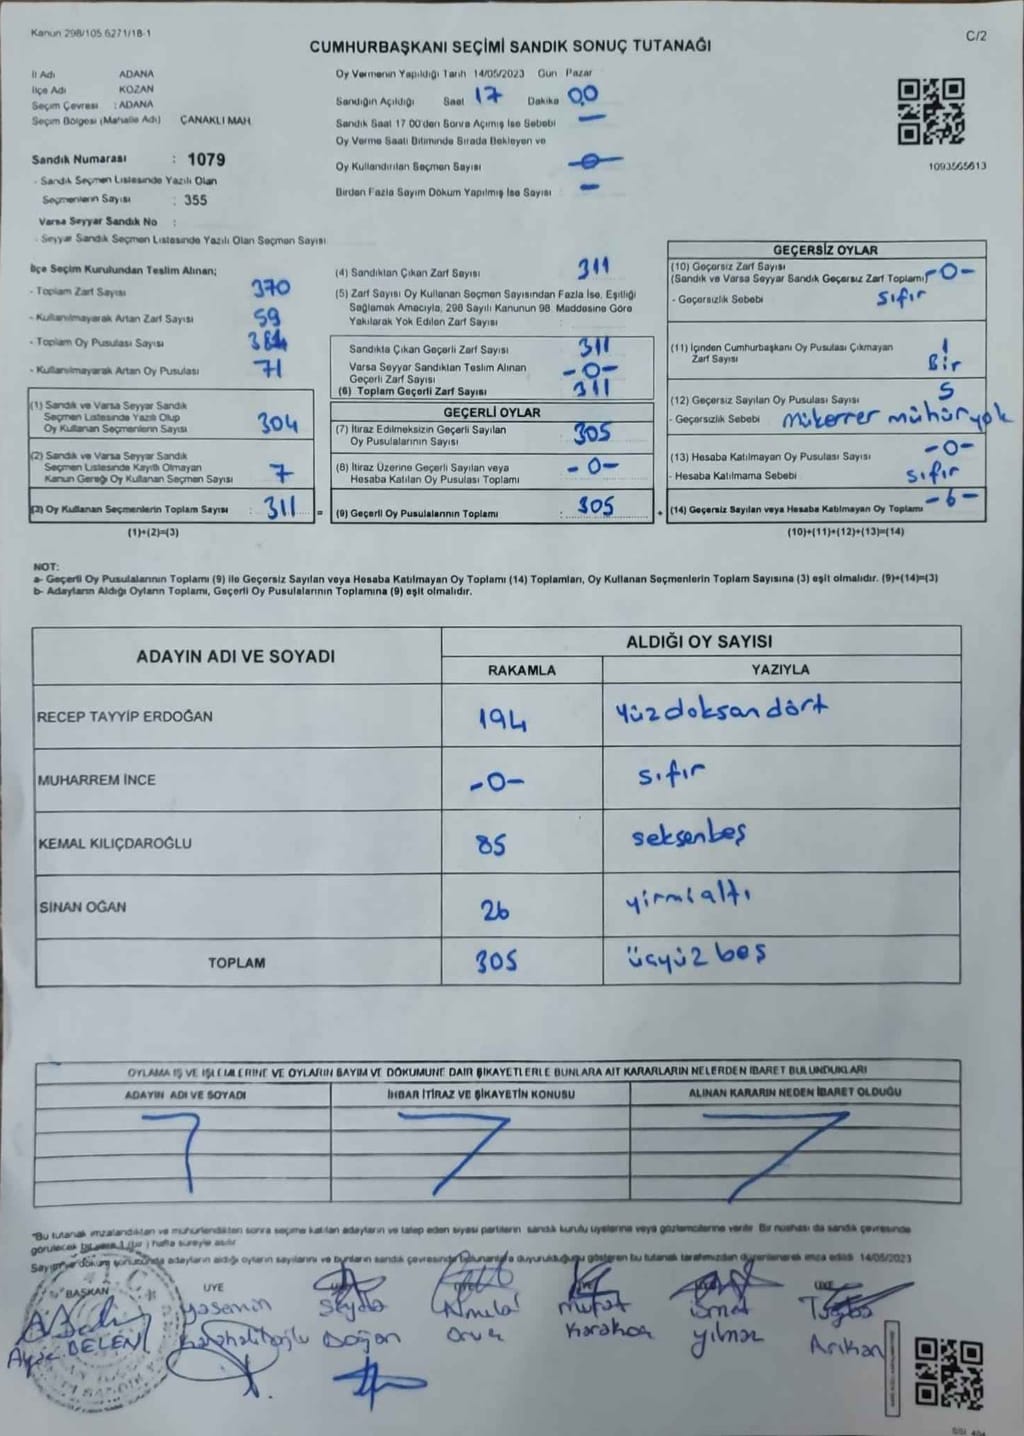 Kanun 298/105.6271/18-1
C/2
CUMHURBAŞKANI SEÇİMİ SANDIK SONUÇ TUTANAĞI
İl Adı ADANA
İlçe Adı KOZAN
Seçim Çevresi : ADANA
Seçim Bölgesi (Mahalle Adı) ÇANAKLI MAH.
Sandık Numarası : 1079
- Sandık Seçmen Listesinde Yazılı Olan
Seçmenlerin Sayısı : 355
Varsa Seyyar Sandık No :
- Seyyar Sandık Seçmen Listesinde Yazılı Olan Seçmen Sayısı
Oy Vermenin Yapıldığı Tarih 14/05/2023 Gün Pazar
Sandığın Açıldığı Saat 17 Dakika 00
Sandık Saat 17 00'den Sonra Açılmış İse Sebebi —
Oy Verme Saati Bitiminde Sırada Bekleyen ve
Oy Kullandırılan Seçmen Sayısı -0-
Birden Fazla Sayım Döküm Yapılmış İse Sayısı -
1093565613
İlçe Seçim Kurulundan Teslim Alınan;
- Toplam Zarf Sayısı 370
- Kullanılmayarak Artan Zarf Sayısı 59
- Toplam Oy Pusulası Sayısı
- Kullanılmayarak Artan Oy Pusulası 71
(1) Sandık ve Varsa Seyyar Sandık
Seçmen Listesinde Yazılı Olup
Oy Kullanan Seçmenlerin Sayısı 304
(2) Sandık ve Varsa Seyyar Sandık
Seçmen Listesinde Kayıtlı Olmayan
Kanun Gereği Oy Kullanan Seçmen Sayısı 7
(3) Oy Kullanan Seçmenlerin Toplam Sayısı : 311 =
(1)+(2)=(3)
(4) Sandıktan Çıkan Zarf Sayısı 311
(5) Zarf Sayısı Oy Kullanan Seçmen Sayısından Fazla İse, Eşitliği
Sağlamak Amacıyla, 298 Sayılı Kanunun 98. Maddesine Göre
Yakılarak Yok Edilen Zarf Sayısı
Sandıkta Çıkan Geçerli Zarf Sayısı 311
Varsa Seyyar Sandıktan Teslim Alınan
Geçerli Zarf Sayısı -0-
(6) Toplam Geçerli Zarf Sayısı 311
GEÇERLİ OYLAR
(7) İtiraz Edilmeksizin Geçerli Sayılan
Oy Pusulalarının Sayısı 305
(8) İtiraz Üzerine Geçerli Sayılan veya
Hesaba Katılan Oy Pusulası Toplamı -0-
(9) Geçerli Oy Pusulalarının Toplamı : 305 +
GEÇERSİZ OYLAR
(10) Geçersiz Zarf Sayısı
(Sandık ve Varsa Seyyar Sandık Geçersiz Zarf Toplamı) -0-
- Geçersizlik Sebebi sıfır
(11) İçinden Cumhurbaşkanı Oy Pusulası Çıkmayan
Zarf Sayısı 1
Bir
(12) Geçersiz Sayılan Oy Pusulası Sayısı 5
- Geçersizlik Sebebi mükerrer mühür yok
(13) Hesaba Katılmayan Oy Pusulası Sayısı -0-
- Hesaba Katılmama Sebebi sıfır
(14) Geçersiz Sayılan veya Hesaba Katılmayan Oy Toplamı -6-
(10)+(11)+(12)+(13)=(14)
NOT:
a- Geçerli Oy Pusulalarının Toplamı (9) ile Geçersiz Sayılan veya Hesaba Katılmayan Oy Toplamı (14) Toplamları, Oy Kullanan Seçmenlerin Toplam Sayısına (3) eşit olmalıdır. (9)+(14)=(3)
b- Adayların Aldığı Oyların Toplamı, Geçerli Oy Pusulalarının Toplamına (9) eşit olmalıdır.
ADAYIN ADI VE SOYADI
ALDIĞI OY SAYISI
RAKAMLA YAZIYLA
RECEP TAYYİP ERDOĞAN 194 yüzdoksandört
MUHARREM İNCE -0- sıfır
KEMAL KILIÇDAROĞLU 85 seksenbeş
SİNAN OĞAN 26 yirmialtı
TOPLAM 305 üçyüz beş
OYLAMA İŞ VE İŞLEMLERİNE VE OYLARIN SAYIM VE DÖKÜMÜNE DAİR ŞİKAYETLERLE BUNLARA AİT KARARLARIN NELERDEN İBARET BULUNDUKLARI
ADAYIN ADI VE SOYADI İHBAR İTİRAZ VE ŞİKAYETİN KONUSU ALINAN KARARIN NEDEN İBARET OLDUĞU
*Bu tutanak imzalandıktan ve mühürlendikten sonra seçime katılan adayların ve talep eden siyasi partilerin sandık kurulu üyelerine veya gözlemcilerine verilir. Bir nüshası da sandık çevresinde
görülecek bir yere 1 (bir) hafta süreyle asılır
Sayım ve döküm sonucunda adayların aldığı oyların sayılarını ve bunların sandık çevresinde bulunanlara duyurulduğunu gösteren bu tutanak tarafımızdan düzenlenerek imza edildi. 14/05/2023
BAŞKAN ÜYE
Ayşe BELEN
Yasemin
Karahaliloğlu
Şeyda
Doğan
Mufat
Karakoç
İsmet
Yılmaz
Tuğba
Arıkan